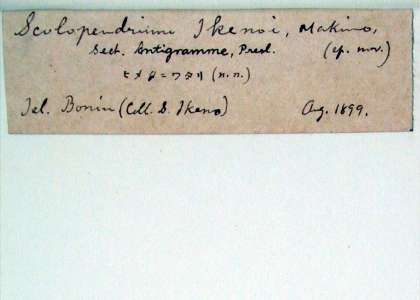 Scolopendrium Ikenoi, Makino,
Sect. Antigramme, Presl. (sp. nov.)
ヒメタニワタリ (n.n.)
Isl. Bonin (Coll. S. Ikeno) Aug. 1899.